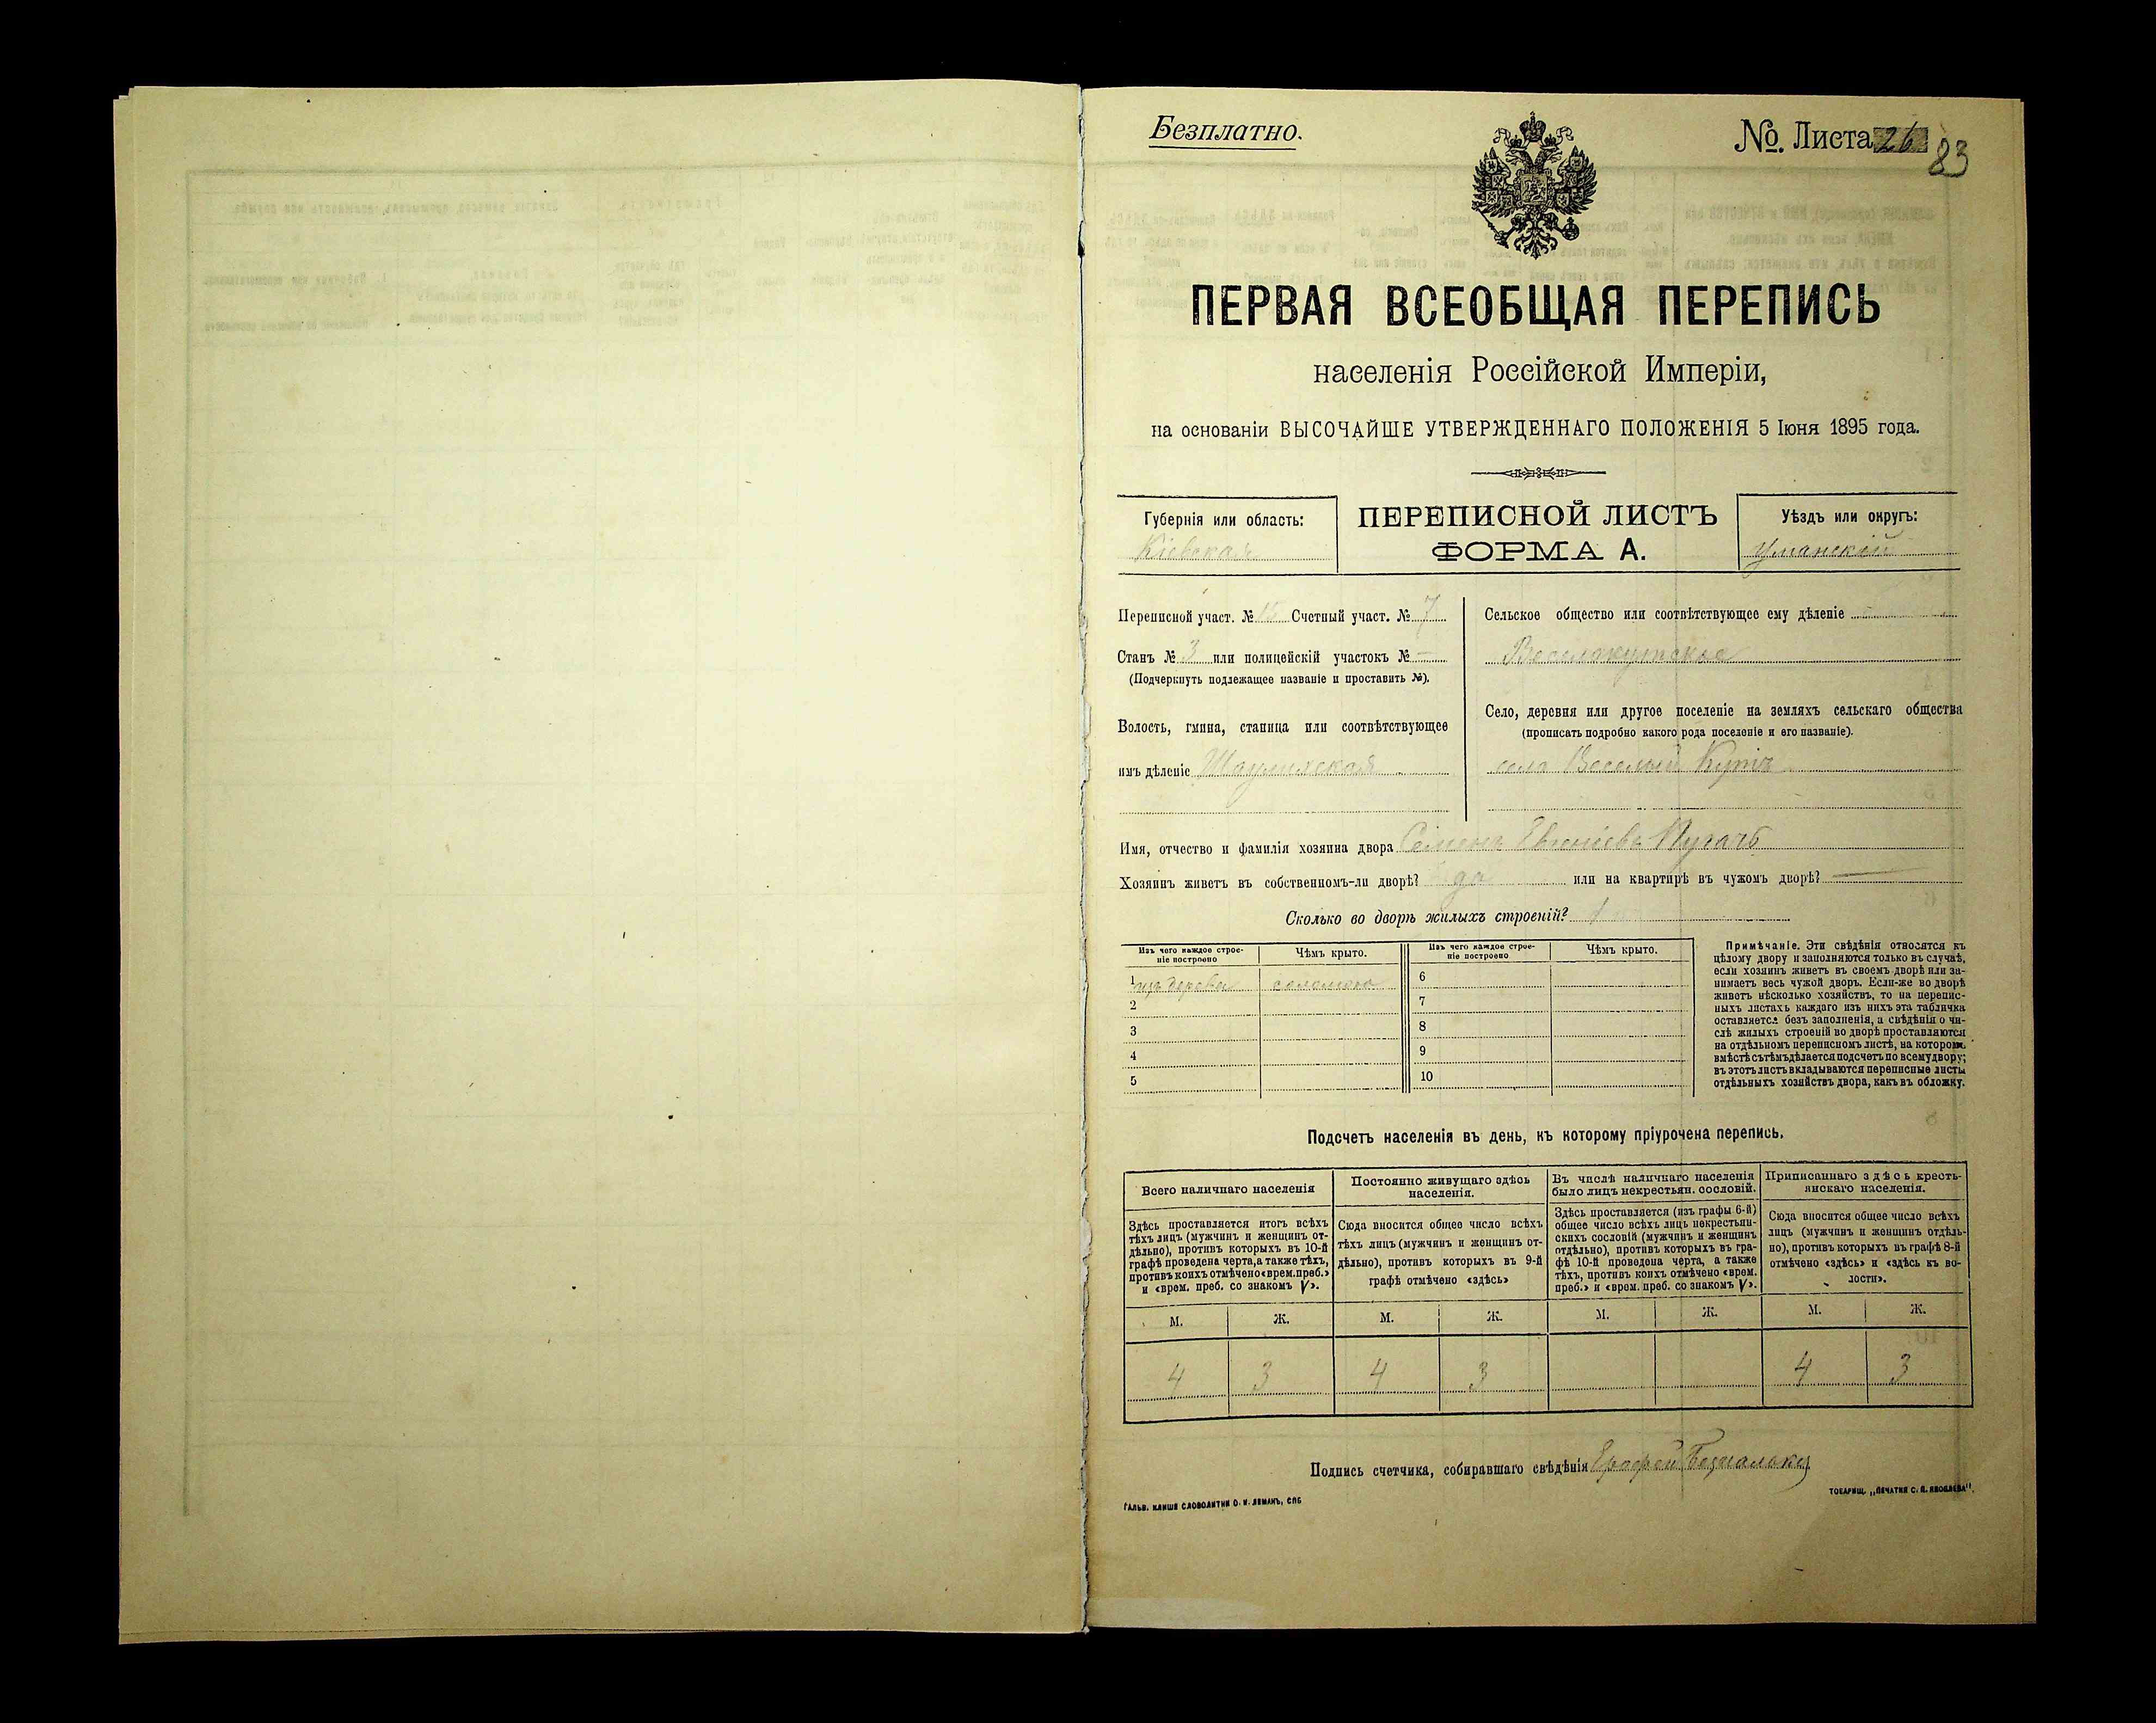 Безплатно.
№. Листа 26
83
ПЕРВАЯ ВСЕОБЩАЯ ПЕРЕПИСЬ
населенія Россійской Имперіи,
на основаніи ВЫСОЧАЙШЕ УТВЕРЖДЕННАГО ПОЛОЖЕНІЯ 5 Іюня 1895 года.
Губернія или область:
Кіевская
ПЕРЕПИСНОЙ ЛИСТЪ
ФОРМА А.
Уѣздъ или округъ:
Уманскій
Переписной участ. № 15 Счетный участ. № 7
Станъ № 3 или полицейскій участокъ № —
(Подчеркнуть подлежащее названіе и проставить №).
Волость, гмина, станица или соотвѣтствующее
имъ дѣленіе
Сельское общество или соотвѣтствующее ему дѣленіе
Веселокутское
Село, деревня или другое поселеніе на земляхъ сельскаго общества
(прописать подробно какого рода поселеніе и его названіе).
село Веселый Кутъ
Имя, отчество и фамилія хозяина двора Семенъ Пугачъ
Хозяинъ живетъ въ собственномъ-ли дворѣ? да или на квартирѣ въ чужомъ дворѣ? —
Сколько во дворѣ жилыхъ строеній? 1
Изъ чего каждое строе-
ніе построено
Чѣмъ крыто.
Изъ чего каждое строе-
ніе построено
Чѣмъ крыто.
1 изъ дерева соломою
2
3
4
5
6
7
8
9
10
Примѣчаніе. Эти свѣдѣнія относятся къ
цѣлому двору и заполняются только въ случаѣ,
если хозяинъ живетъ въ своемъ дворѣ или за-
нимаетъ весь чужой дворъ. Если-же во дворѣ
живетъ нѣсколько хозяйствъ, то на перепис-
ныхъ листахъ каждаго изъ нихъ эта табличка
оставляется безъ заполненія, а свѣдѣнія о чи-
слѣ жилыхъ строеній во дворѣ проставляются
на отдѣльномъ переписномъ листѣ, на которомъ
вмѣстѣ съ тѣмъ дѣлается подсчетъ по всему двору;
въ этотъ листъ вкладываются переписные листы
отдѣльныхъ хозяйствъ двора, какъ въ обложку.
Подсчетъ населенія въ день, къ которому пріурочена перепись.
Всего наличнаго населенія
Здѣсь проставляется итогъ всѣхъ
тѣхъ лицъ (мужчинъ и женщинъ от-
дѣльно), противъ которыхъ въ 10-й
графѣ проведена черта, а также тѣхъ,
противъ коихъ отмѣчено «врем. преб.»
и «врем. преб. со знакомъ V».
Постоянно живущаго здѣсь
населенія.
Сюда вносится общее число всѣхъ
тѣхъ лицъ (мужчинъ и женщинъ от-
дѣльно), противъ которыхъ въ 9-й
графѣ отмѣчено «здѣсь»
Въ числѣ наличнаго населенія
было лицъ некрестьян. сословій.
Здѣсь проставляется (изъ графы 6-й)
общее число всѣхъ лицъ некрестьян-
скихъ сословій (мужчинъ и женщинъ
отдѣльно), противъ которыхъ въ гра-
фѣ 10-й проведена черта, а также
тѣхъ, противъ коихъ отмѣчено «врем.
преб.» и «врем. преб. со знакомъ V».
Приписаннаго здѣсь кресть-
янскаго населенія.
Сюда вносится общее число всѣхъ
лицъ (мужчинъ и женщинъ отдѣль-
но), противъ которыхъ въ графѣ 8-й
отмѣчено «здѣсь» и «здѣсь къ во-
лости».
М. Ж. М. Ж. М. Ж. М. Ж.
4 3 4 3 4 3
Подпись счетчика, собиравшаго свѣдѣнія
ГАЛЬВ. КЛИШЕ СЛОВОЛИТНИ О. И. ЛЕМАНЪ, СПБ
ТОВАРИЩ. „ПЕЧАТНЯ С. П. ЯКОВЛЕВА".